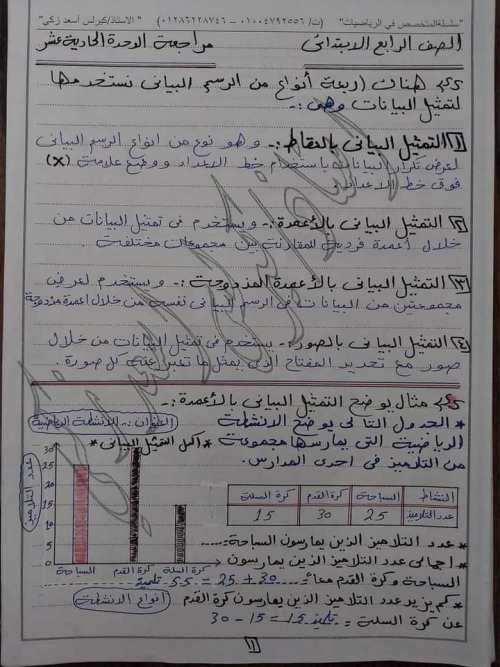 "سلسلة المتخصص في الرياضيات" (ت/ ٠١٠٠٤٧٩٢٥٥٦ – ٠١٢٨٦٢٢٨٧٤٦) "الاستاذ/ كيرلس أسعد زكي"
الصف الرابع الابتدائى مراجعة الوحدة الحادية عشر
هناك أربعة أنواع من الرسم البيانى نستخدمها
لتمثيل البيانات وهى :-
[١] التمثيل البيانى بالنقاط :- وهو نوع من انواع الرسم البيانى
لعرض تكرار البيانات باستخدام خط الاعداد ووضع علامة (X)
فوق خط الاعداد
[٢] التمثيل البيانى بالأعمدة :- ويستخدم فى تمثيل البيانات من
خلال أعمدة فردية للمقارنة بين مجموعات مختلفة .
[٣] التمثيل البيانى بالأعمدة المزدوجة :- ويستخدم لعرض
مجموعتين من البيانات فى الرسم البيانى نفسه من خلال اعمدة مزدوجة
[٤] التمثيل البيانى بالصور :- يستخدم فى تمثيل البيانات من خلال
صور مع تحديد المفتاح الذى يمثل ما تعبر عنه كل صورة .
مثال يوضح التمثيل البيانى بالأعمدة :-
* الجدول التالى يوضح الانشطة
العنوان :- الانشطة الرياضية
الرياضية التى يمارسها مجموعة
* اكمل التمثيل البيانى *
من التلاميذ فى احدى المدارس .
النشاط السباحة كرة القدم كرة السلة
عدد التلاميذ 25 30 15
عدد التلاميذ
30
25
20
15
10
5
0
السباحة كرة القدم كرة السلة
أنواع الانشطة
* عدد التلاميذ الذين يمارسون السباحة = ....
* اجمالى عدد التلاميذ الذين يمارسون
السباحة وكرة القدم معاً = 30 + 25 = 55 تلميذ
* كم يزيد عدد التلاميذ الذين يمارسون كرة القدم
عن كرة السلة = 30 - 15 = 15 تلميذ